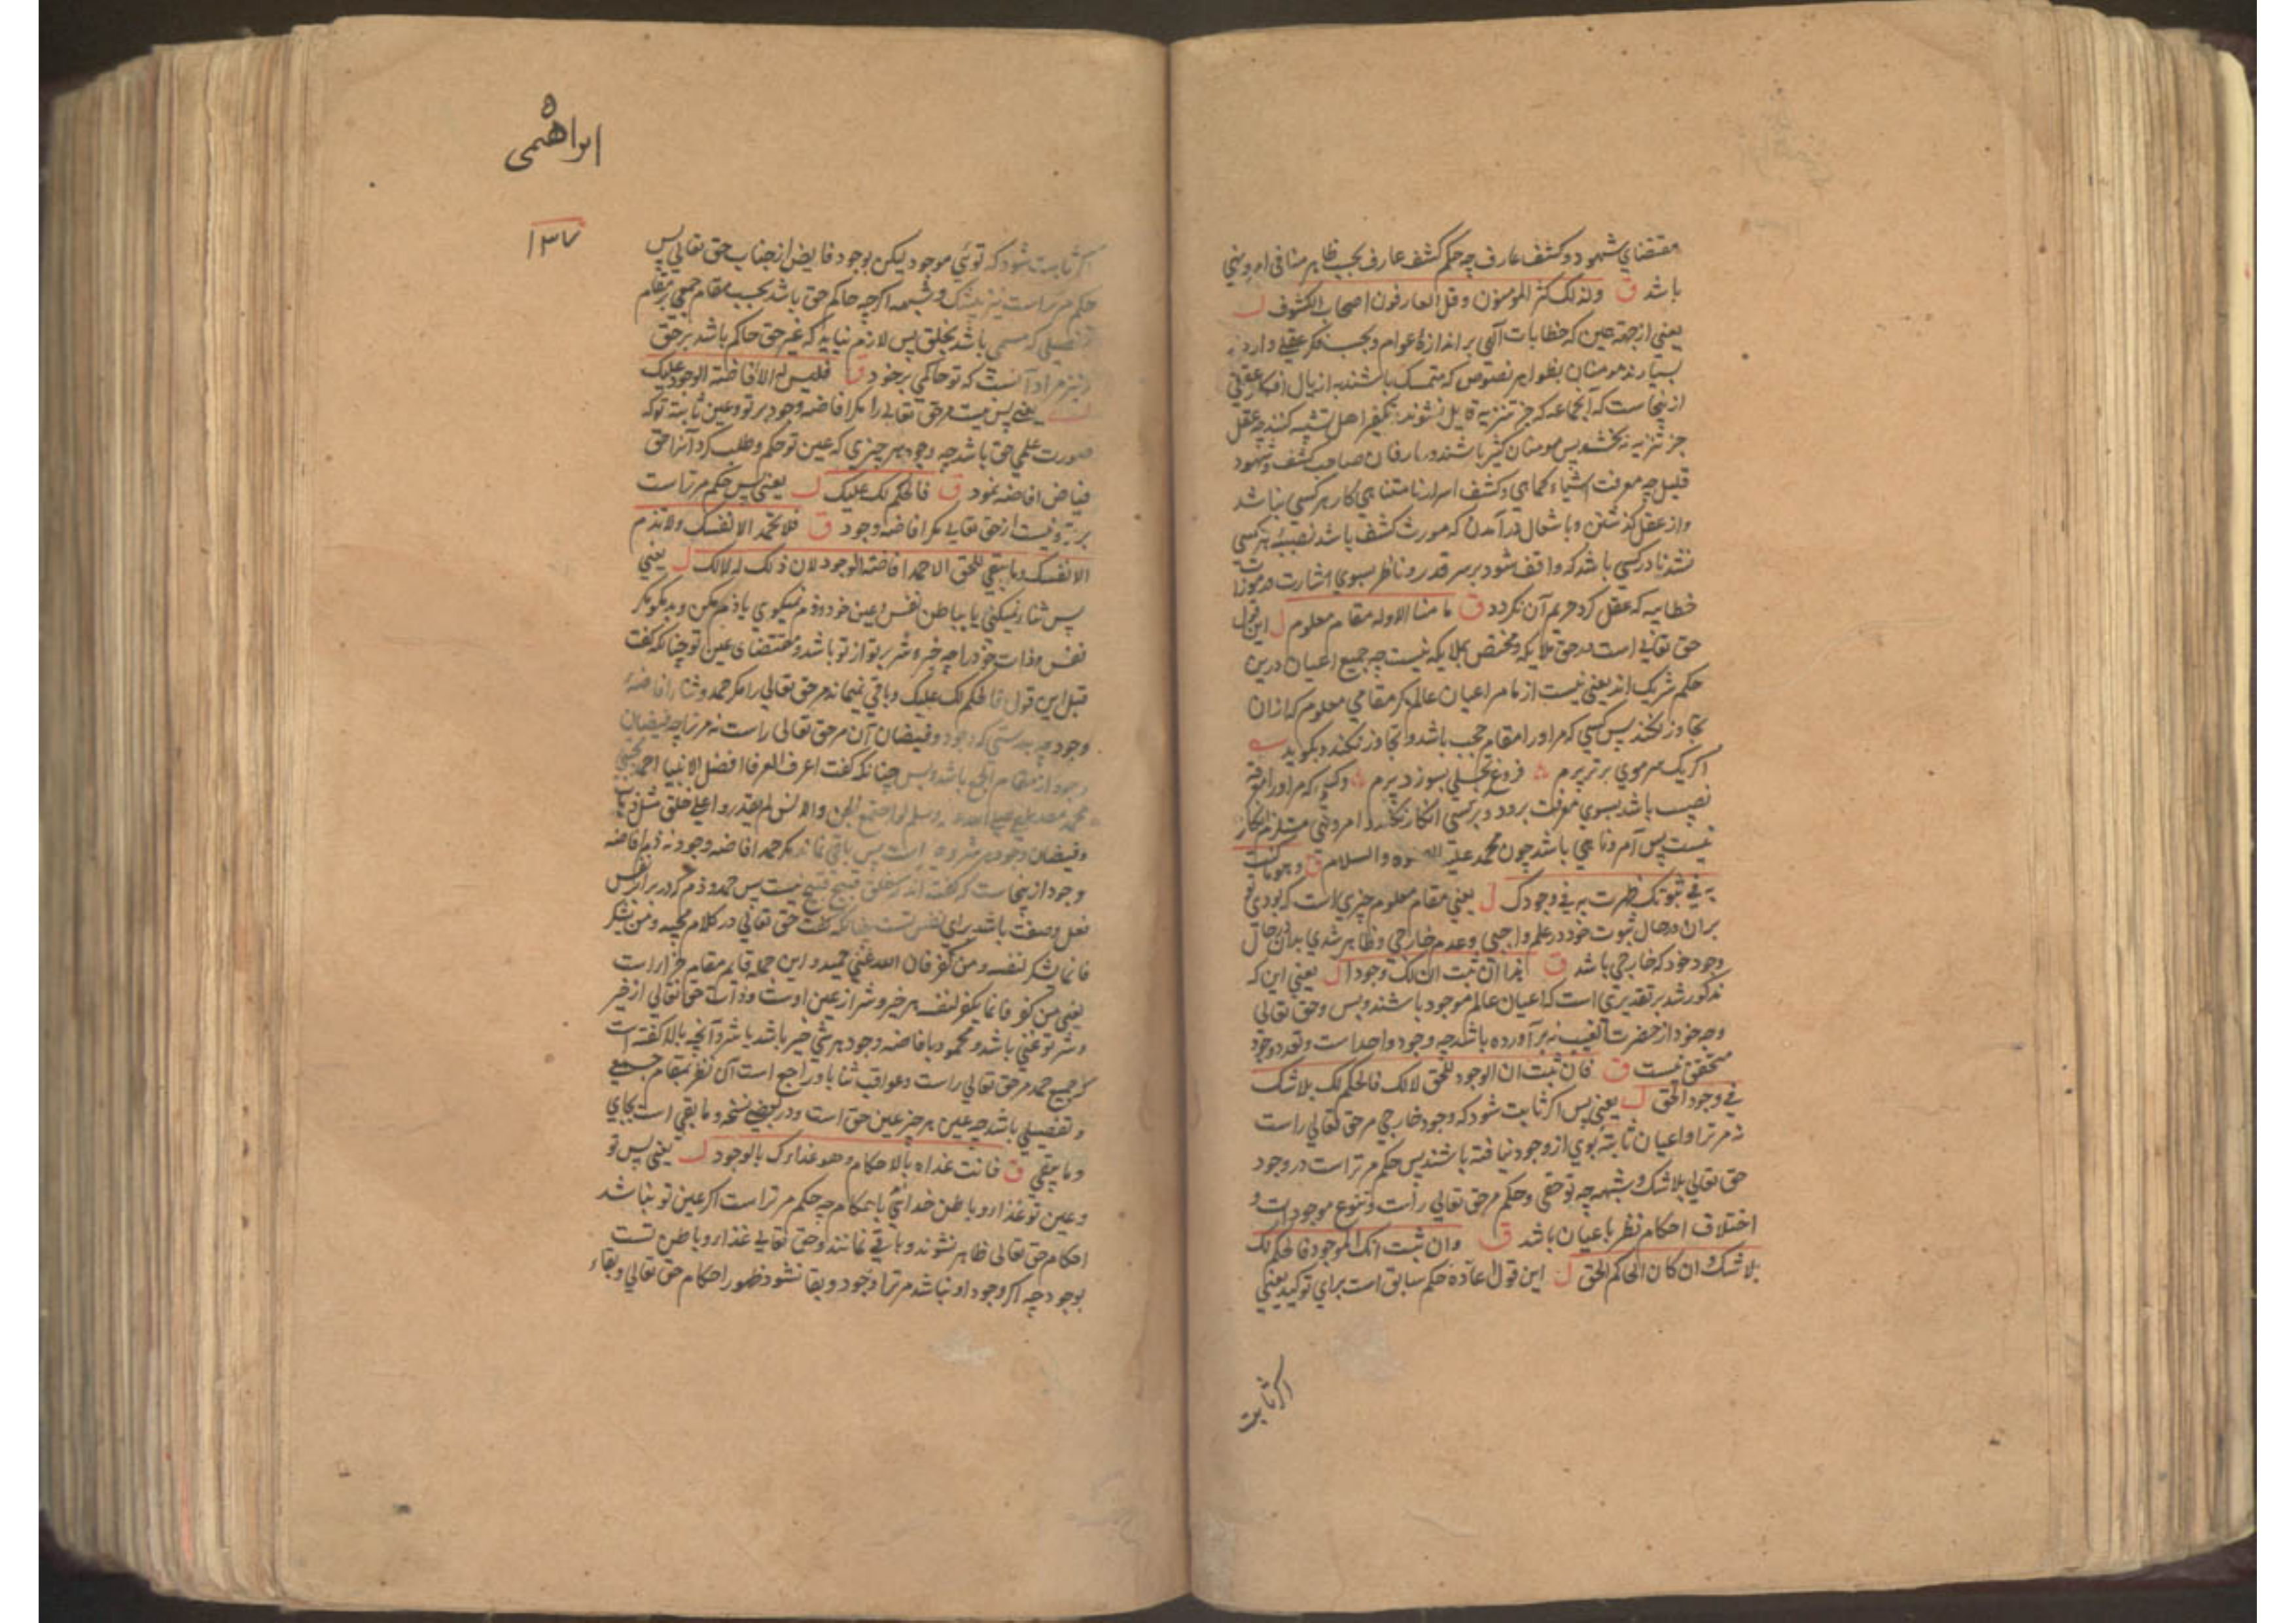 مقتضای شهود و کشف عارف چه حکم کشف عارف بحسب ظاهر منافی امر و نهی
باشد ق ولذلک کثر المومنون وقل العارفون اصحاب الکشوف ل
یعنی از جهة همین که خطابات الهی بر اندازهٔ عوام و بحسب فکر عقلی وارد
بسیارند مومنان بظواهر نصوص که متمسک باشند به اذیال افکار عقلی
ازینجاست که آنجماعه که جز تنزیه قایل نشوند تکفیر اهل تشبیه کنند چه عقل
جز تنزیه نه بخشد پس مومنان کثیر باشند و عارفان صاحب کشف و شهود
قلیل چه معرفت اشیاء کماهی و کشف اسرار نامتناهی کار هر کسی نباشد
و از عقل گذشتن و باشغال درآمدن که مورث کشف باشد نصیبهٔ هر کسی
نشد نادر کسی باشد که واقف شود بر سر قدر و ناظر بسوی اشارت و رموزات
خطابیه که عقل گرد حریم آن نگردد ق ما منا الا وله مقام معلوم ل این قول
حق تعالی است در حق ملایکه و مختص بملایکه نیست چه جمیع اعیان درین
حکم شریک اند یعنی نیست از ما مر اعیان عالم مگر مقامی معلوم که ازان
تجاوز نکند پس کسی که مر او را مقام حجب باشد و تجاوز نکند و بگوید
اگر یک سر موی برتر پرم فروغ تجلی بسوزد پرم و کسی که مر او را معرفة
نصیب باشد بسوی معرفت برود و بر کسی انکار نکند امر و نهی مستلزم انکار
نیست پس آمر و ناهی باشد چون محمد علیه الصلوه والسلام ق وهو ما کنت
به فی ثبوتک ظهرت به فی وجودک ل یعنی مقام معلوم چیزی است که بودی تو
بران در حال ثبوت خود در علم واجبی و عدم خارجی و ظاهر شدی بدان در حال
وجود خود که خارجی باشد ق هذا ان ثبت ان لک وجودا ل یعنی این که
مذکور شد بر تقدیری است که اعیان عالم موجود باشند و بس و حق تعالی
وجه خود از حضرت الغیب نه برآورده باشد چه وجود واحد است و تعدد وجود
متحقق نیست ق فان ثبت ان الوجود للحق لا لک فالحکم لک بلا شک
فی وجود الحق ل یعنی پس اگر ثابت شود که وجود خارجی مر حق تعالی راست
نه مر ترا و اعیان ثابته بوی از وجود نیافته باشند پس حکم مر تراست در وجود
حق تعالی بلا شک و شبهه چه تو حقی و حکم مر حق تعالی راست و تنوع موجودات و
اختلاف احکام نظر باعیان باشد ق وان ثبت انک الموجود فالحکم لک
بلا شک وان کان الحاکم الحق ل این قول عاده حکم سابق است برای توکید یعنی
اگر ثابت
ابراهیمی
۱۳۷
اگر ثابت شود که توئی موجود لیکن بوجود فایض از جناب حق تعالی پس
حکم مر تراست نیز بیشک و شبهه اگرچه حاکم حق باشد بحسب مقام جمعی بر مقام
تفصیلی که مسمی باشد بخلق پس لازم نیاید که غیر حق حاکم باشد بر حق
و نیز مراد آنست که تو حاکمی بر خود ق فلیس له الا افاضة الوجود علیک
ل یعنی پس نیست مر حق تعالی را مگر افاضه وجود بر تو و عین ثابته تو که
صورت علمی حق باشد چه وجود هر چیزی که عین تو حکم و طلب کرد آنرا حق
فیاض افاضه نمود ق فالحکم لک علیک ل یعنی پس حکم مر تراست
بر تو و نیست از حق تعالی مگر افاضه وجود ق فلا تحمد الا نفسک ولا تذم
الا نفسک وما یبقی للحق الا حمد افاضة الوجود لان ذلک له لا لک ل یعنی
پس ثنا نمیکنی یا بباطن نفس و عین خود و ذم نمیکوی یا ذم مکن و بد مگو مگر
نفس و ذات خود را چه خیر و شر بر تو از تو باشد و مقتضای عین تو چنانکه گفت
قبل این قول فالحکم لک علیک و باقی نمیماند مر حق تعالی را مگر حمد و ثنا افاضهٔ
وجود چه بدرستی که وجود و فیضان آن مر حق تعالی راست نه مر ترا چه فیضان
وجود از مقام الجمع باشد و بس چنانکه گفت اعرف العرفا افضل الانبیا احمد مجتبی
محمد مصطفی صلی الله علیه وسلم لو اجتمع الجن والانس لم یقدروا علی خلق مثل ذباب
و فیضان وجود هر شر و خیر است پس باقی نماند مگر حمد افاضه وجود نه ذم افاضه
وجود ازینجاست که گفته اند که خلق قبیح قبیح نیست پس حمد و ذم که در برابر نفس
فعل و صفت باشد برای نفس تست چنانکه گفت حق تعالی در کلام مجید ومن یشکر
فانما یشکر لنفسه ومن کفر فان الله غنی حمید و این جمله قایم مقام جزا راست
یعنی من کفر فانما یکفر لنفسه هر خیر و شر از عین اوست و ذات حق تعالی از خیر
و شر تو غنی باشد و محمود بافاضه وجود هر شی خیر باشد یا شر و آنچه بالا گفته است
که جمیع حمد مر حق تعالی راست و عواقب ثنا باو راجع است آن نظر بمقام جمعی
و تفصیلی باشد چه عین هر چیز عین حق است و در بعضی نسخه وما بقی است بجای
وما یبقی ق فانت غذاه بالاحکام وهو غذاءک بالوجود ل یعنی پس تو
و عین تو غذاء و باطن خدائی باحکام چه حکم مر تراست اگر عین تو نباشد
احکام حق تعالی ظاهر نشوند و باقی نمانند و حق تعالی غذاء و باطن تست
بوجود چه اگر وجود او نباشد مر ترا وجود و بقا نشود ظهور احکام حق تعالی و بقاء